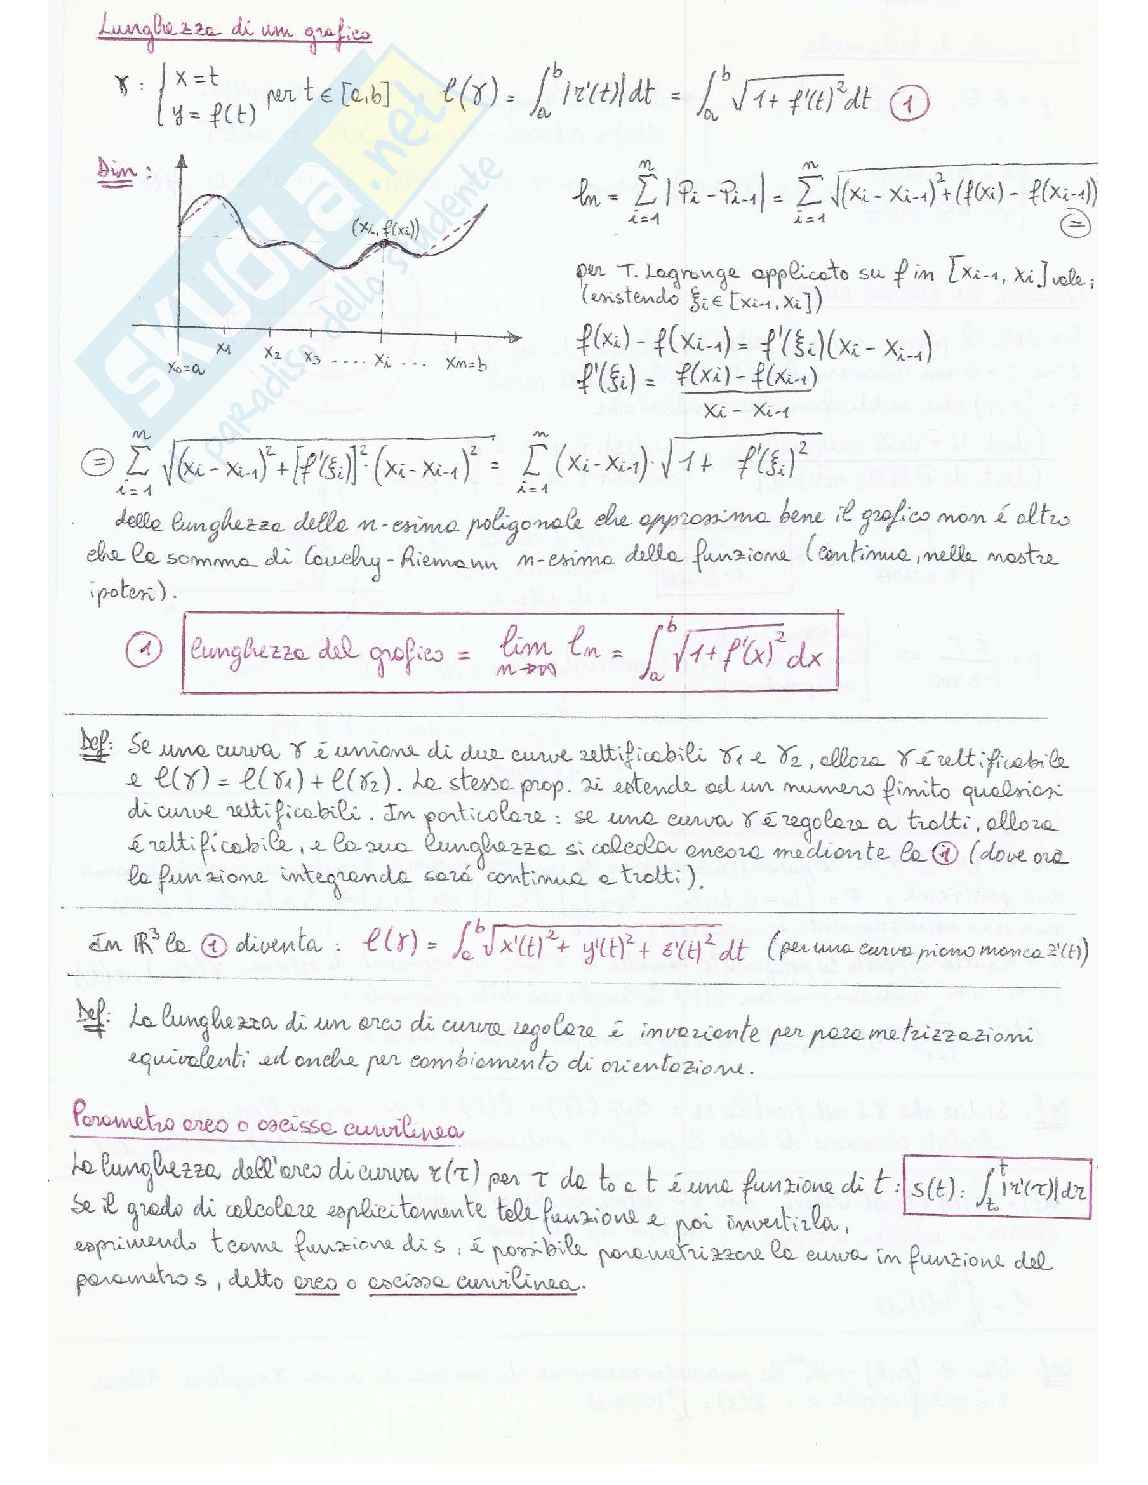 Lunghezza di un grafico
γ: { x = t
y = f(t) per t ∈ [a,b] ℓ(γ) = ∫_a^b |r'(t)| dt = ∫_a^b √(1 + f'(t)²) dt ①
Dim:
SKUOLA.net
paradiso dello studente
(xi, f(xi))
x0=a x1 x2 x3 .... xi ... xn=b
ℓn = Σ_{i=1}^n |Pi - Pi-1| = Σ_{i=1}^n √((xi - xi-1)² + (f(xi) - f(xi-1))
=
per T. Lagrange applicato su f in [xi-1, xi] vale:
(esistendo ξi ∈ [xi-1, xi])
f(xi) - f(xi-1) = f'(ξi)(xi - xi-1)
f'(ξi) = f(xi) - f(xi-1) / xi - xi-1
= Σ_{i=1}^n √((xi - xi-1)² + [f'(ξi)]² · (xi - xi-1)²) = Σ_{i=1}^n (xi - xi-1) · √(1 + f'(ξi)²)
della lunghezza della n-esima poligonale che approssima bene il grafico non é altro
che la somma di Cauchy-Riemann n-esima della funzione (continua, nelle nostre
ipotesi).
① lunghezza del grafico = lim_{n→∞} ℓn = ∫_a^b √(1 + f'(x)²) dx
Def: Se una curva γ é unione di due curve rettificabili γ1 e γ2, allora γ é rettificabile
e ℓ(γ) = ℓ(γ1) + ℓ(γ2). La stessa prop. si estende ad un numero finito qualsiasi
di curve rettificabili. In particolare: se una curva γ é regolare a tratti, allora
é rettificabile, e la sua lunghezza si calcola ancora mediante la ① (dove ora
la funzione integranda sará continua a tratti).
In ℝ³ la ① diventa: ℓ(γ) = ∫_a^b √(x'(t)² + y'(t)² + z'(t)²) dt (per una curva piana manca z'(t))
Def: La lunghezza di un arco di curva regolare é invariante per parametrizzazioni
equivalenti ed anche per cambiamento di orientazione.
Parametro arco o ascissa curvilinea
La lunghezza dell'arco di curva r(τ) per τ da t0 a t é una funzione di t: s(t): ∫_{t0}^t |r'(τ)| dτ
Se il grado di calcolare esplicitamente tale funzione e poi invertirla,
esprimendo t come funzione di s, é possibile parametrizzare la curva in funzione del
parametro s, detto arco o ascissa curvilinea.